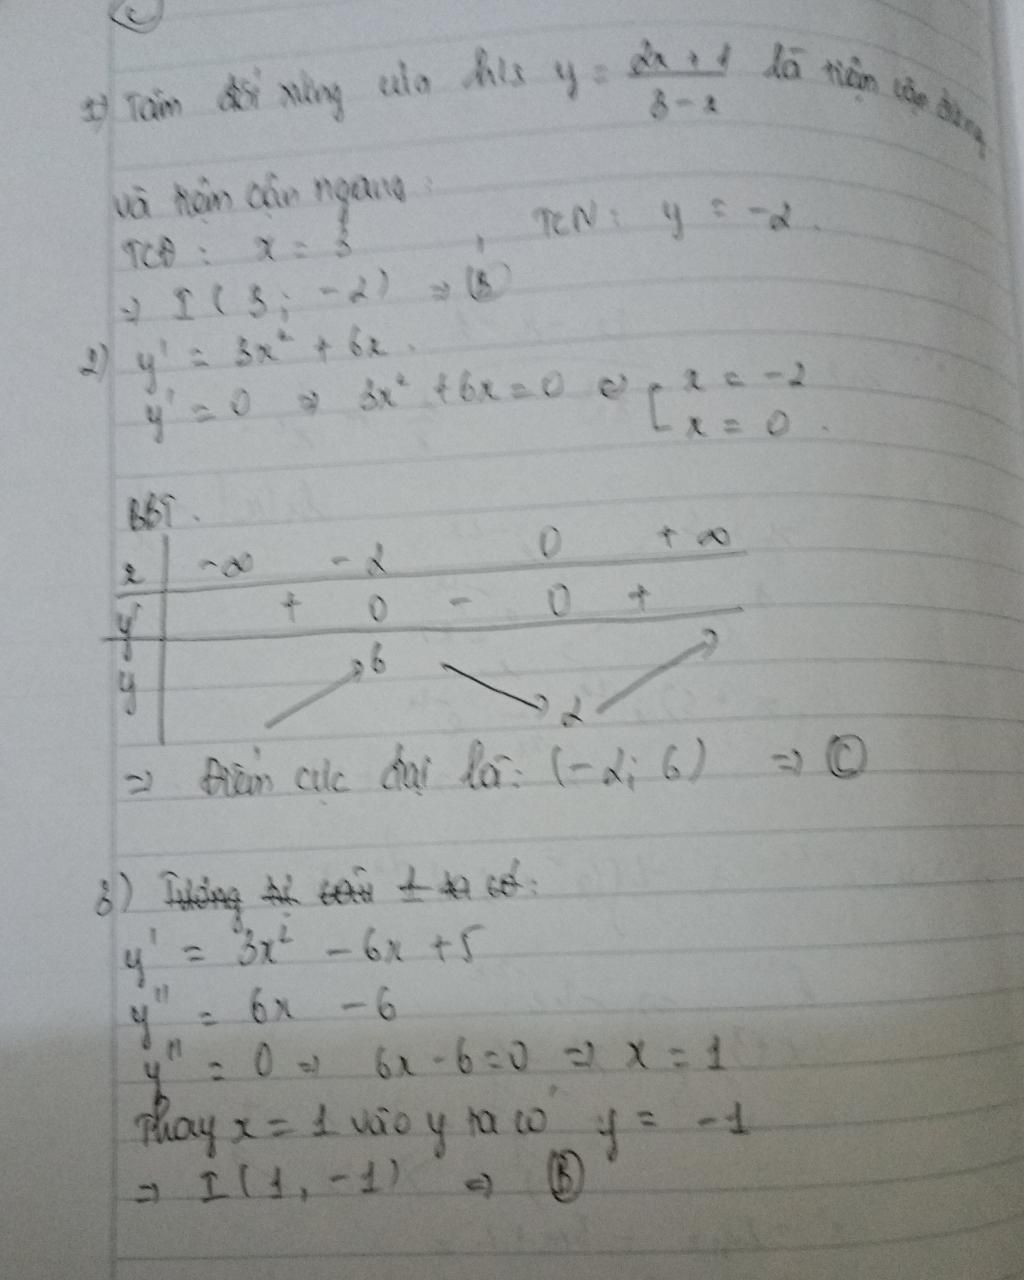 1) Tâm đối xứng của h/s y = \frac{2x + 1}{3 - x} là tiệm cận đứng
và tiệm cận ngang:
TCĐ : x = 3 , TCN : y = -2.
⇒ I ( 3 ; -2) ⇒ (B)
2) y' = 3x² + 6x.
y' = 0 ⇒ 3x² + 6x = 0 ⇔ [ x = -2
x = 0.
BBT.
x -∞ -2 0 +∞
y' + 0 - 0 +
y 6 2
⇒ Điểm cực đại là: (-2; 6) ⇒ (C)
3) Tương tự câu 1 ta có:
y' = 3x² - 6x + 5
y'' = 6x - 6
y'' = 0 ⇒ 6x - 6 = 0 ⇒ x = 1
Thay x = 1 vào y ta có y = -1
⇒ I (1, -1) ⇒ (B)